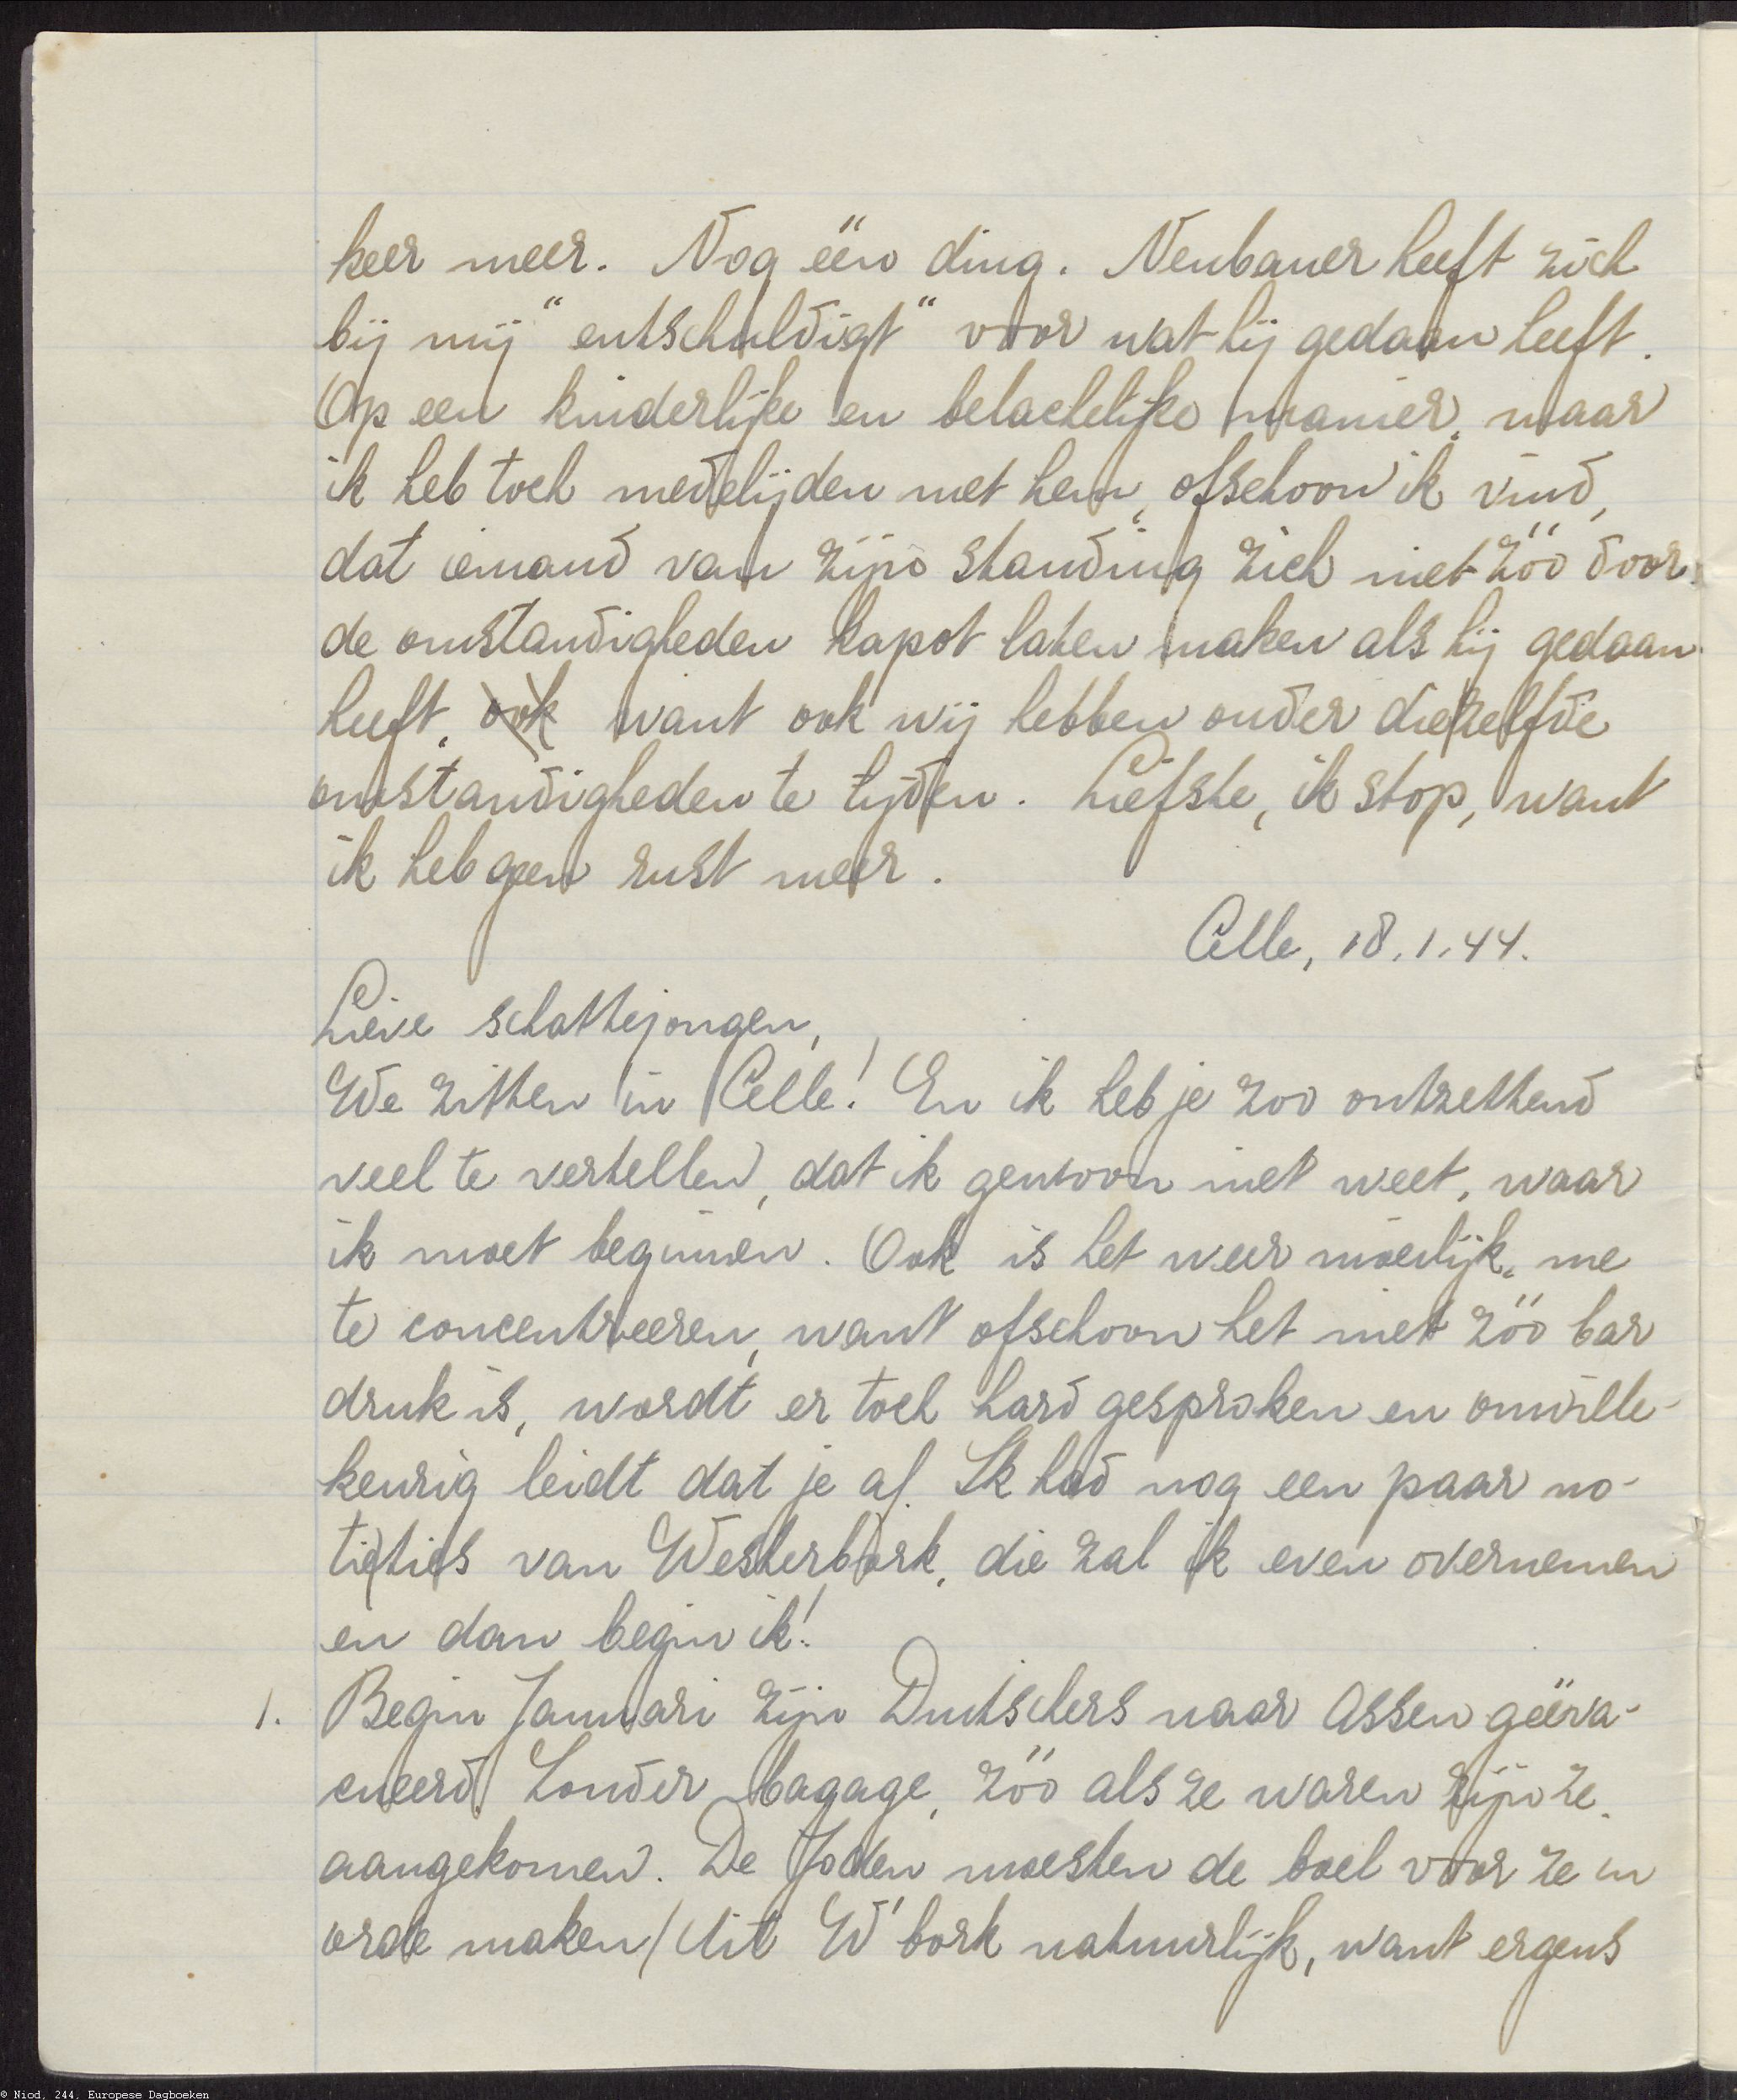 keer meer. Nog één ding. Neubauer heeft zich
bij mij "entschuldigt" voor wat hij gedaan heeft.
Op een kinderlijke en belachelijke manier, maar
ik heb toch medelijden met hem, ofschoon ik vind,
dat iemand van zijn standing zich niet zóó door
de omstandigheden kapot laten maken als hij gedaan
heeft, ook want ook wij hebben onder diezelfde
omstandigheden te lijden. Liefste, ik stop, want
ik heb geen rust meer.
Celle, 18.1.44.
Lieve schattejongen,
We zitten in Celle! En ik heb je zoo ontzettend
veel te vertellen, dat ik gewoon niet weet, waar
ik moet beginnen. Ook is het weer moeilijk, me
te concentreeren, want ofschoon het niet zóó bar
druk is, wordt er toch hard gesproken en onwille-
keurig leidt dat je af. Ik had nog een paar no-
tities van Westerbork, die zal ik even overnemen
en dan begin ik!
1. Begin Januari zijn Duitschers naar Assen geëva-
cueerd. Zonder bagage, zóó als ze waren zijn ze
aangekomen. De Joden moesten de boel voor ze in
orde maken (Uit W'bork natuurlijk, want ergens
© Niod, 244, Europese Dagboeken